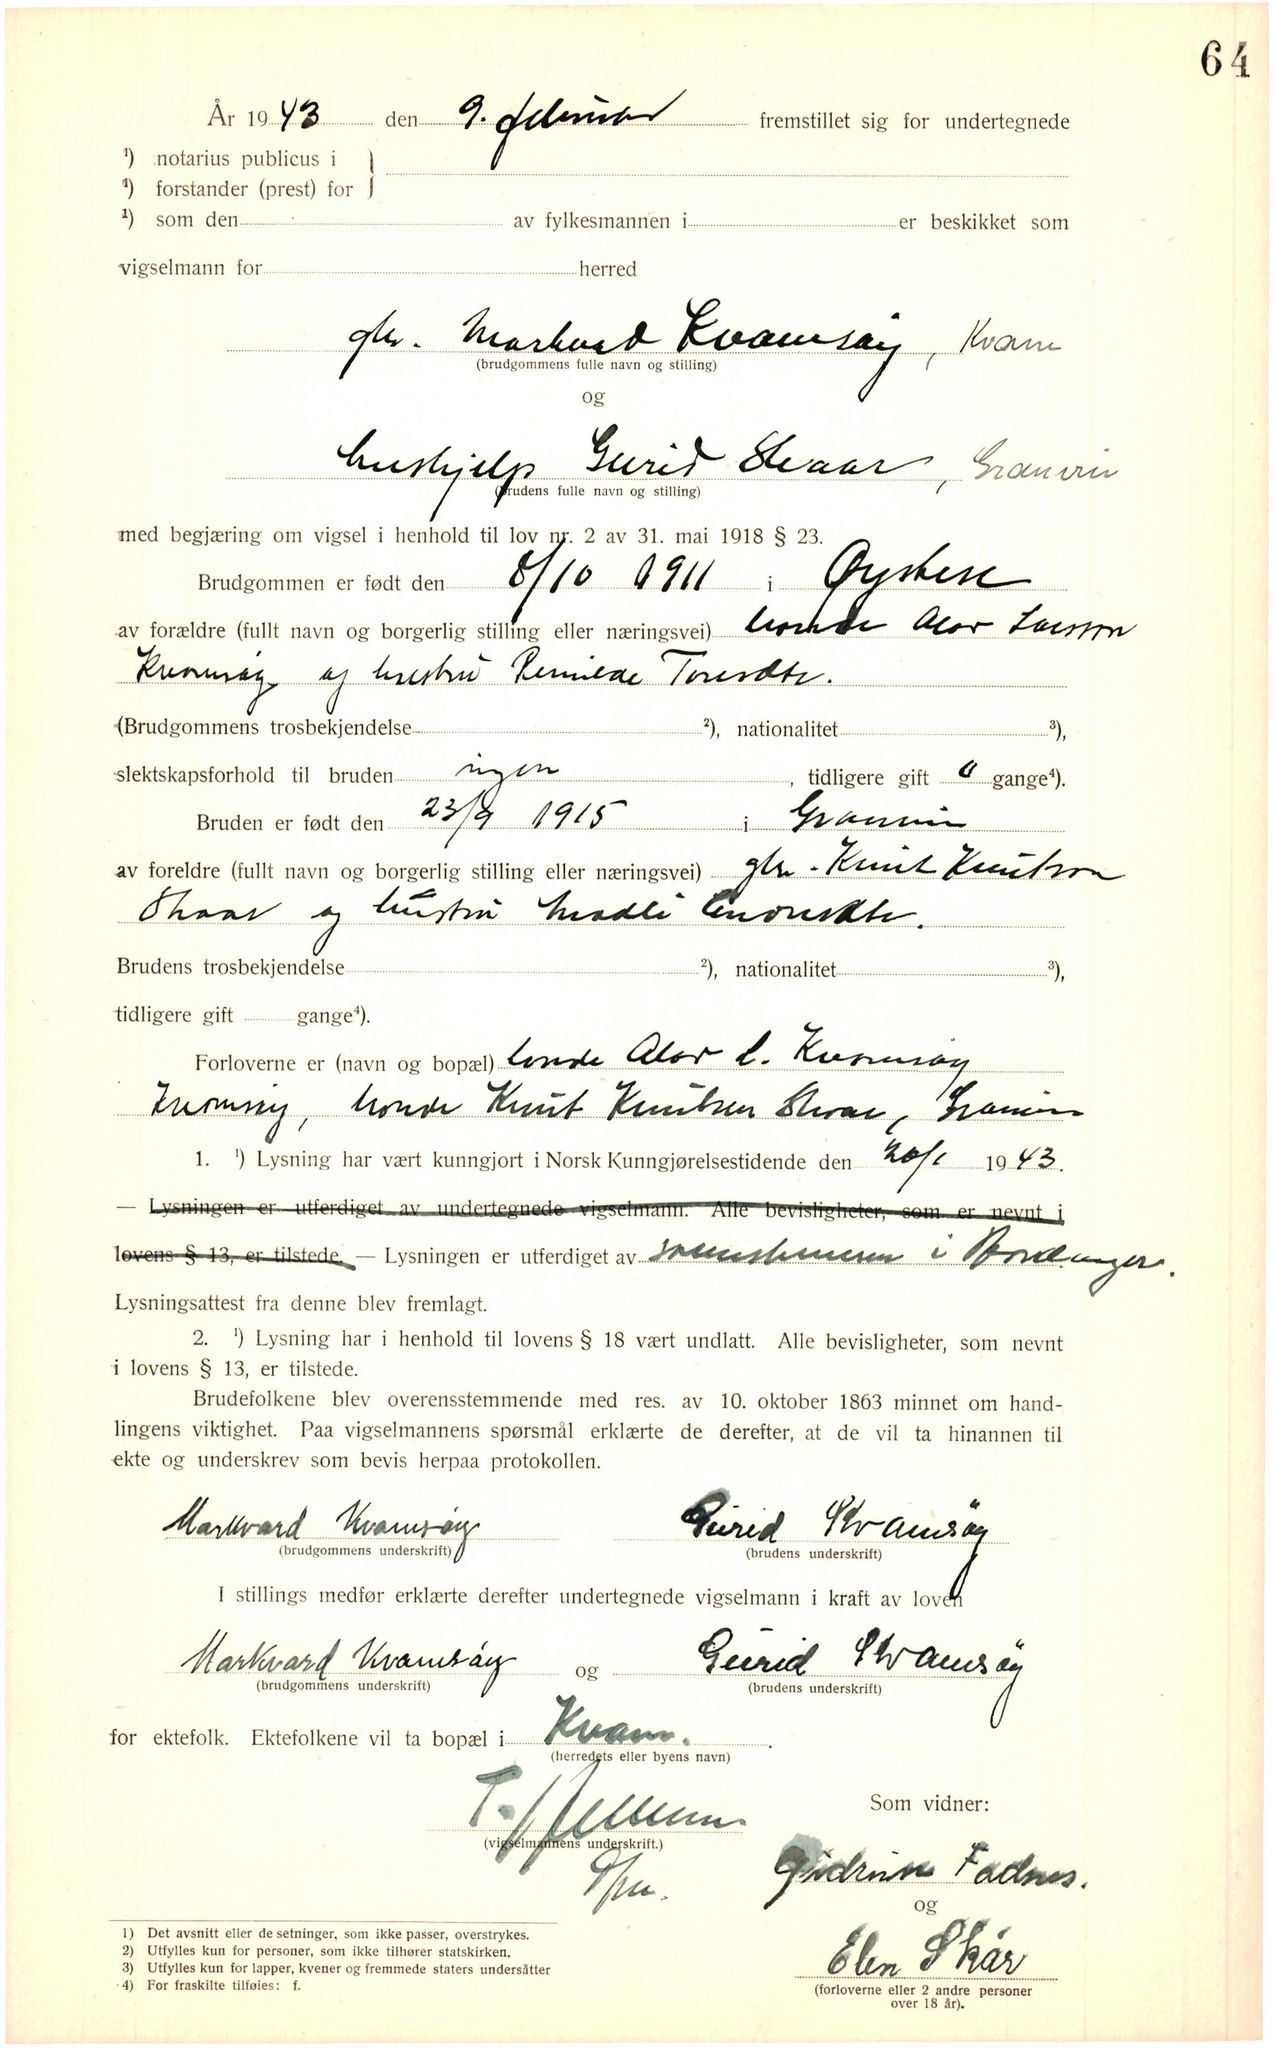 64
År 1943 den 9. februar fremstillet sig for undertegnede
¹) notarius publicus i }
¹) forstander (prest) for }
¹) som den av fylkesmannen i er beskikket som
vigselmann for herred
gbr. Markvard Kvamsøy, Kvam
(brudgommens fulle navn og stilling)
og
hushjelp Gurid Skaar, Granvin
(brudens fulle navn og stilling)
med begjæring om vigsel i henhold til lov nr. 2 av 31. mai 1918 § 23.
Brudgommen er født den 8/10 1911 i Øystese
av forældre (fullt navn og borgerlig stilling eller næringsvei) bonde Alov Larsson
Kvamsøy og hustru Pernilde Toresdtr.
(Brudgommens trosbekjendelse ²), nationalitet ³),
slektskapsforhold til bruden ingen, tidligere gift 0 gange⁴).
Bruden er født den 23/9 1915 i Granvin
av foreldre (fullt navn og borgerlig stilling eller næringsvei) gbr. Knut Knutson
Skaar og hustru Madli
Brudens trosbekjendelse ²), nationalitet ³),
tidligere gift gange⁴).
Forloverne er (navn og bopæl) bonde Alov L. Kvamsøy
Kvamsøy, bonde Knut Knutsen Skaar, Granvin
1. ¹) Lysning har vært kunngjort i Norsk Kunngjørelsestidende den 20/1 1943.
— Lysningen er utferdiget av undertegnede vigselmann. Alle bevisligheter, som er nevnt i
lovens § 13, er tilstede. — Lysningen er utferdiget av sorenskriveren i Hardanger.
Lysningsattest fra denne blev fremlagt.
2. ¹) Lysning har i henhold til lovens § 18 vært undlatt. Alle bevisligheter, som nevnt
i lovens § 13, er tilstede.
Brudefolkene blev overensstemmende med res. av 10. oktober 1863 minnet om hand-
lingens viktighet. Paa vigselmannens spørsmål erklærte de derefter, at de vil ta hinannen til
ekte og underskrev som bevis herpaa protokollen.
Markvard Kvamsøy Gurid Kvamsøy
(brudgommens underskrift) (brudens underskrift)
I stillings medfør erklærte derefter undertegnede vigselmann i kraft av loven
Markvard Kvamsøy og Gurid Kvamsøy
(brudgommens underskrift) (brudens underskrift)
for ektefolk. Ektefolkene vil ta bopæl i Kvam.
(herredets eller byens navn)
T.
(vigselmannens underskrift.)
Som vidner:
Gudrun Fadnes.
og
Elen Skår
(forloverne eller 2 andre personer
over 18 år).
1) Det avsnitt eller de setninger, som ikke passer, overstrykes.
2) Utfylles kun for personer, som ikke tilhører statskirken.
3) Utfylles kun for lapper, kvener og fremmede staters undersåtter
4) For fraskilte tilføies: f.